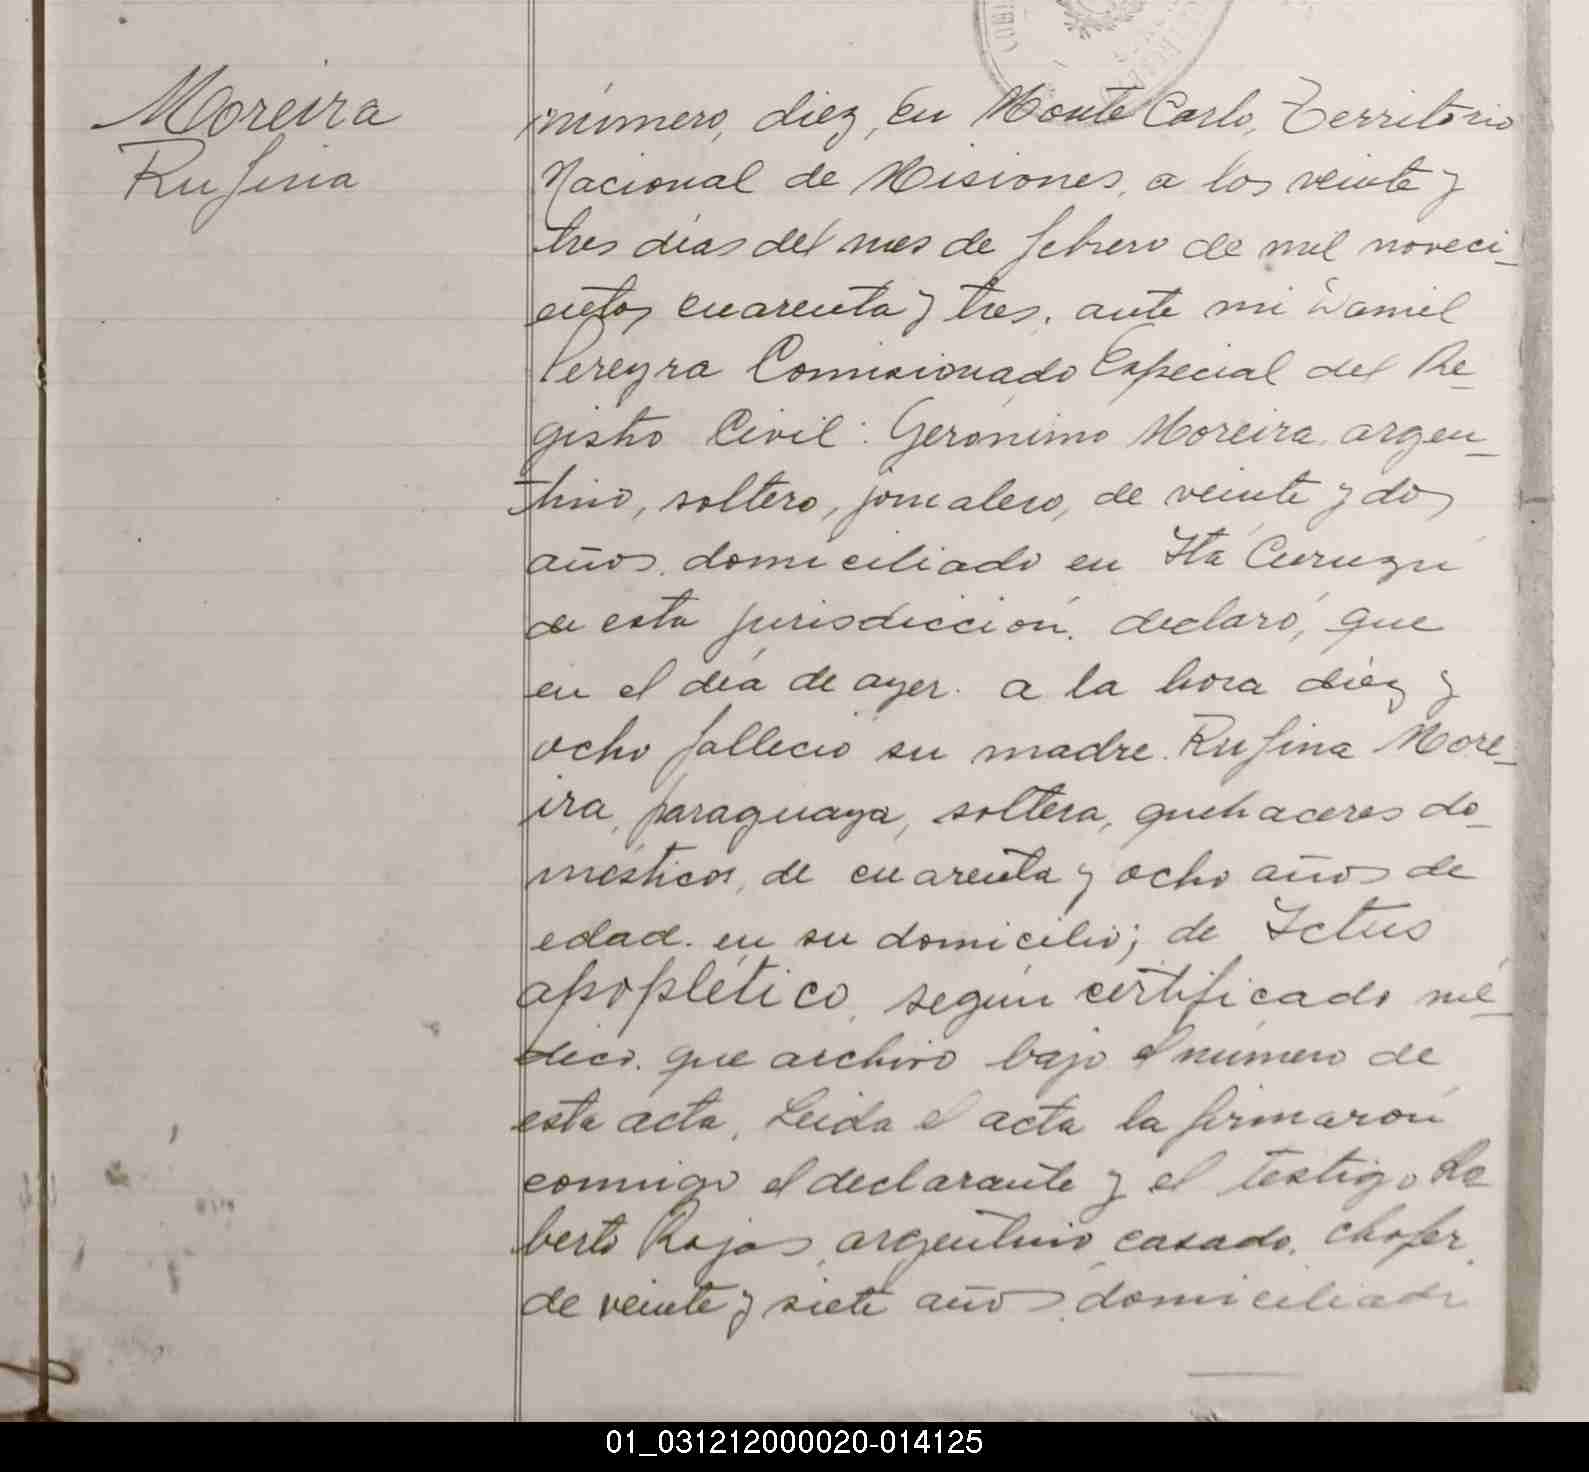 Moreira
Rufina
número, diez, en Monte Carlo, Territorio
Nacional de Misiones, a los veinte y
tres días del mes de febrero de mil noveci-
entos cuarenta y tres, ante mi Daniel
Pereyra Comisionado Especial del Re-
gistro Civil: Gerónimo Moreira, argen-
tino, soltero, jornalero, de veinte y dos
años, domiciliado en Itá Curuzú
de esta jurisdicción, declaró, que
en el día de ayer, a la hora diez y
ocho falleció su madre Rufina More-
ira, paraguaya, soltera, quehaceres do-
mésticos, de cuarenta y ocho años de
edad, en su domicilio; de Ictus
apoplético, según certificado mé-
dico, que archivo bajo el número de
esta acta, Leida el acta la firmarón
conmigo el declarante y el testigo
berto Rojas, argentino, casado, chofer,
de veinte y siete años, domiciliado
01_031212000020-014125